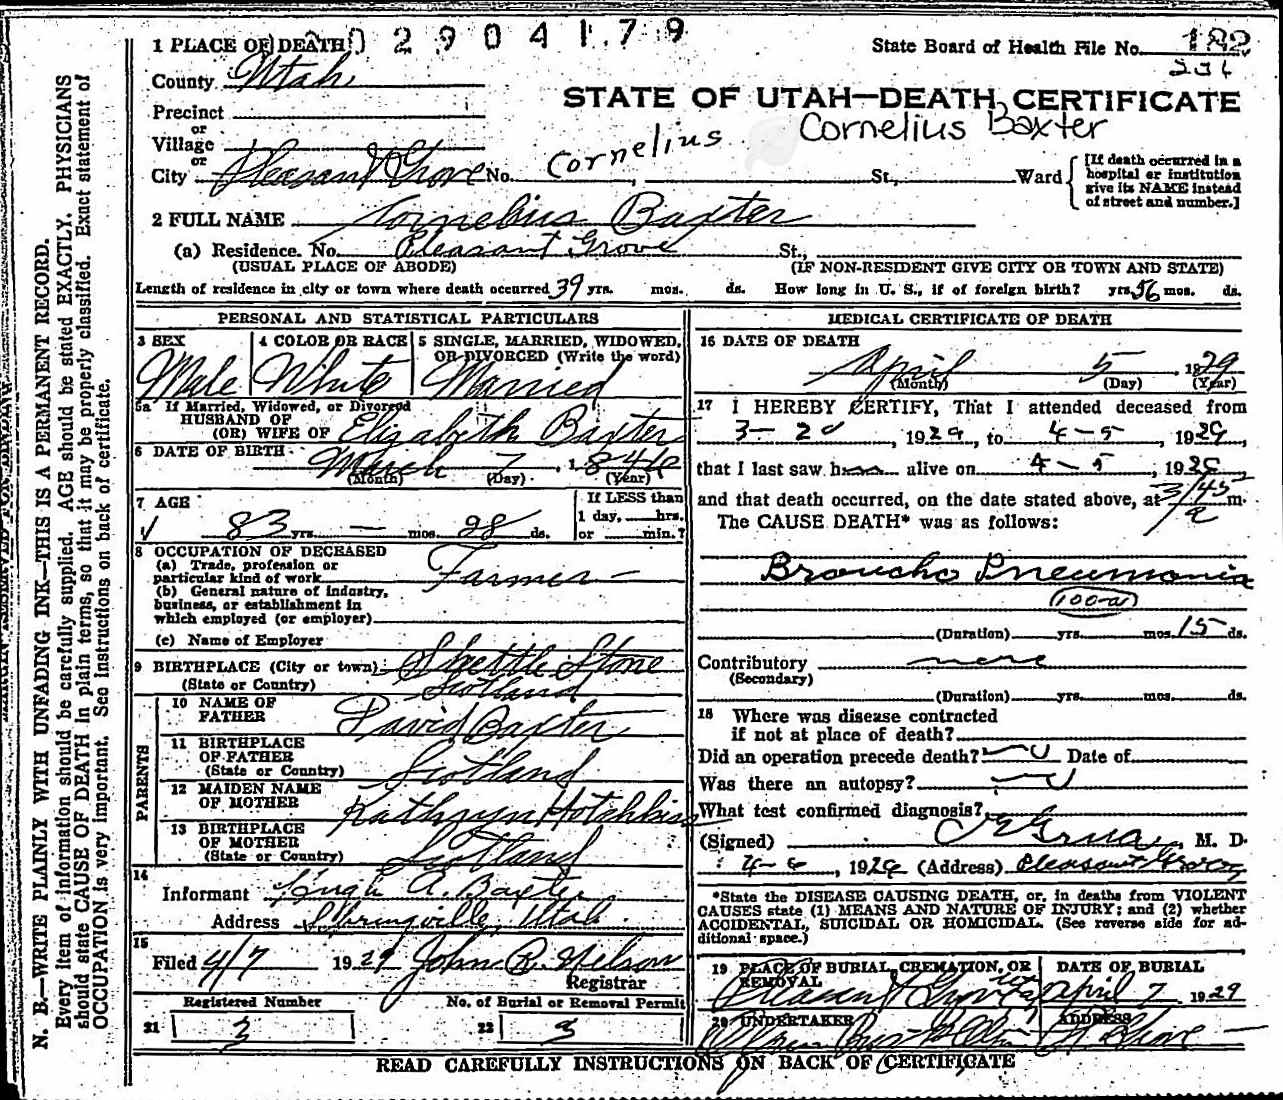 02904179
1 PLACE OF DEATH
State Board of Health File No. 182
236
County Utah
STATE OF UTAH—DEATH CERTIFICATE
Precinct
or
Cornelius Baxter
Village
or
City Pleasant Grove No. Cornelius, St., Ward
[If death occurred in a
hospital or institution
give its NAME instead
of street and number.]
2 FULL NAME Cornelius Baxter
(a) Residence. No. Pleasant Grove St.,
(USUAL PLACE OF ABODE) (IF NON-RESIDENT GIVE CITY OR TOWN AND STATE)
Length of residence in city or town where death occurred 39 yrs. mos. ds. How long in U. S., if of foreign birth? yrs. 56 mos. ds.
PERSONAL AND STATISTICAL PARTICULARS
3 SEX
Male
4 COLOR OR RACE
White
5 SINGLE, MARRIED, WIDOWED,
OR DIVORCED (Write the word)
Married
5a If Married, Widowed, or Divorced
HUSBAND OF
(OR) WIFE OF Elizabeth Baxter
6 DATE OF BIRTH March 7, 1846
(Month) (Day) (Year)
7 AGE
83 yrs. — mos. 28 ds.
If LESS than
1 day, hrs.
or min.?
8 OCCUPATION OF DECEASED
(a) Trade, profession or
particular kind of work Farmer
(b) General nature of industry,
business, or establishment in
which employed (or employer)
(c) Name of Employer
9 BIRTHPLACE (City or town) Shettle Stone
(State or Country) Scotland
PARENTS
10 NAME OF
FATHER David Baxter
11 BIRTHPLACE
OF FATHER
(State or Country) Scotland
12 MAIDEN NAME
OF MOTHER Kathryn Hotchkiss
13 BIRTHPLACE
OF MOTHER
(State or Country) Scotland
14
Informant Hugh A. Baxter
Address Springville, Utah
15
Filed 4/7 1929 John R. Nelson
Registrar
Registered Number
21 3
No. of Burial or Removal Permit
22 3
MEDICAL CERTIFICATE OF DEATH
16 DATE OF DEATH
April 5, 1929
(Month) (Day) (Year)
17 I HEREBY CERTIFY, That I attended deceased from
3-20, 1929, to 4-5, 1929,
that I last saw him alive on 4-5, 1929,
and that death occurred, on the date stated above, at 3/45 a m.
The CAUSE DEATH* was as follows:
Broncho Pneumonia
100-a
(Duration) yrs. mos. 15 ds.
Contributory none
(Secondary)
(Duration) yrs. mos. ds.
18 Where was disease contracted
if not at place of death?
Did an operation precede death? no Date of
Was there an autopsy? no
What test confirmed diagnosis?
(Signed) , M. D.
4-6, 1929 (Address) Pleasant Grove
*State the DISEASE CAUSING DEATH, or, in deaths from VIOLENT
CAUSES state (1) MEANS AND NATURE OF INJURY; and (2) whether
ACCIDENTAL, SUICIDAL OR HOMICIDAL. (See reverse side for ad-
ditional space.)
19 PLACE OF BURIAL, CREMATION, OR
REMOVAL
Pleasant Grove
DATE OF BURIAL
April 7 1929
20 UNDERTAKER
ADDRESS
READ CAREFULLY INSTRUCTIONS ON BACK OF CERTIFICATE
N. B.—WRITE PLAINLY WITH UNFADING INK—THIS IS A PERMANENT RECORD.
Every item of information should be carefully supplied. AGE should be stated EXACTLY. PHYSICIANS
should state CAUSE OF DEATH in plain terms, so that it may be properly classified. Exact statement of
OCCUPATION is very important. See instructions on back of certificate.